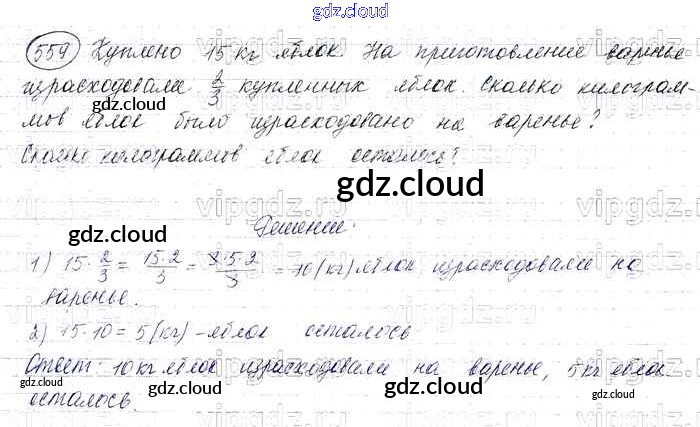 gdz.cloud
559 Куплено 15 кг яблок. На приготовление варенье
израсходовали 2/3 купленных яблок. Сколько килограм-
gdz.cloud
мов яблок было израсходовано на варенье?
Сколько килограммов яблок осталось?
gdz.cloud
vipgdz.com
Решение:
gdz.cloud
1) 15·2/3 = 15·2/3 = 3·5·2/3 = 10 (кг) яблок израсходовали на
варенье.
2) 15-10 = 5 (кг) - яблок осталось
Ответ: 10 кг яблок израсходовали на варенье, 5 кг яблок
gdz.cloud gdz.cloud
осталось.
gdz.cloud